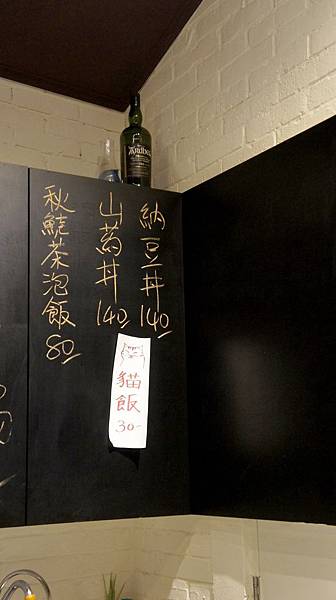 Ardbeg
納豆丼 140
山葯丼 140
秋鮭茶泡飯 80
貓飯
30-